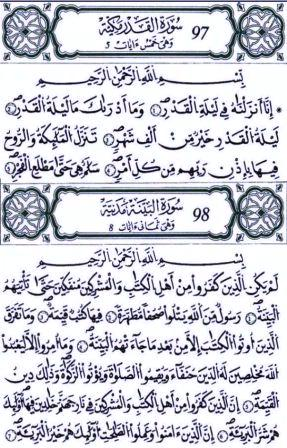 97
سورة القدر مكية
وهى خمس ءايات 5
بسم الله الرحمن الرحيم
إنا أنزلناه في ليلة القدر وما أدراك ما ليلة القدر
ليلة القدر خير من ألف شهر تنزل الملئكة والروح
فيها بإذن ربهم من كل أمر سلم هي حتى مطلع الفجر
98
سورة البينة مدنية
وهى ثمانى ءايات 8
بسم الله الرحمن الرحيم
لم يكن الذين كفروا من أهل الكتب والمشركين منفكين حتى تأتيهم
البينة رسول من الله يتلوا صحفا مطهرة فيها كتب قيمة وما تفرق
الذين أوتوا الكتب إلا من بعد ما جاءتهم البينة وما أمروا إلا ليعبدوا
الله مخلصين له الدين حنفاء ويقيموا الصلوة ويؤتوا الزكوة وذلك دين
القيمة إن الذين كفروا من أهل الكتب والمشركين في نار جهنم خلدين فيها أولئك
هم شر البريئة إن الذين ءامنوا وعملوا الصلحت أولئك هم خير البريئة